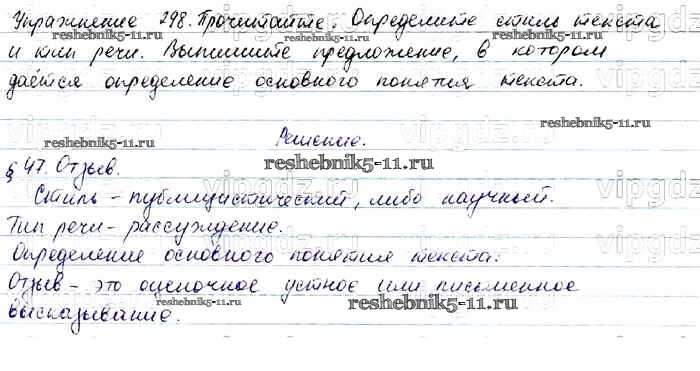 Упражнение 298. Прочитайте. Определите стиль текста
reshebnik5-11.ru
и тип речи. Выпишите предложение, в котором
reshebnik5-11.ru
даётся определение основного понятия текста.
reshebnik5-11.ru
reshebnik5-11.ru
Решение.
reshebnik5-11.ru
§ 47. Отзыв.
vipgdz.ru
Стиль - публицистический, либо научный.
Тип речи - рассуждение.
vipgdz.ru
Определение основного понятия текста:
Отзыв - это оценочное устное или письменное
reshebnik5-11.ru
reshebnik5-11.ru
высказывание.